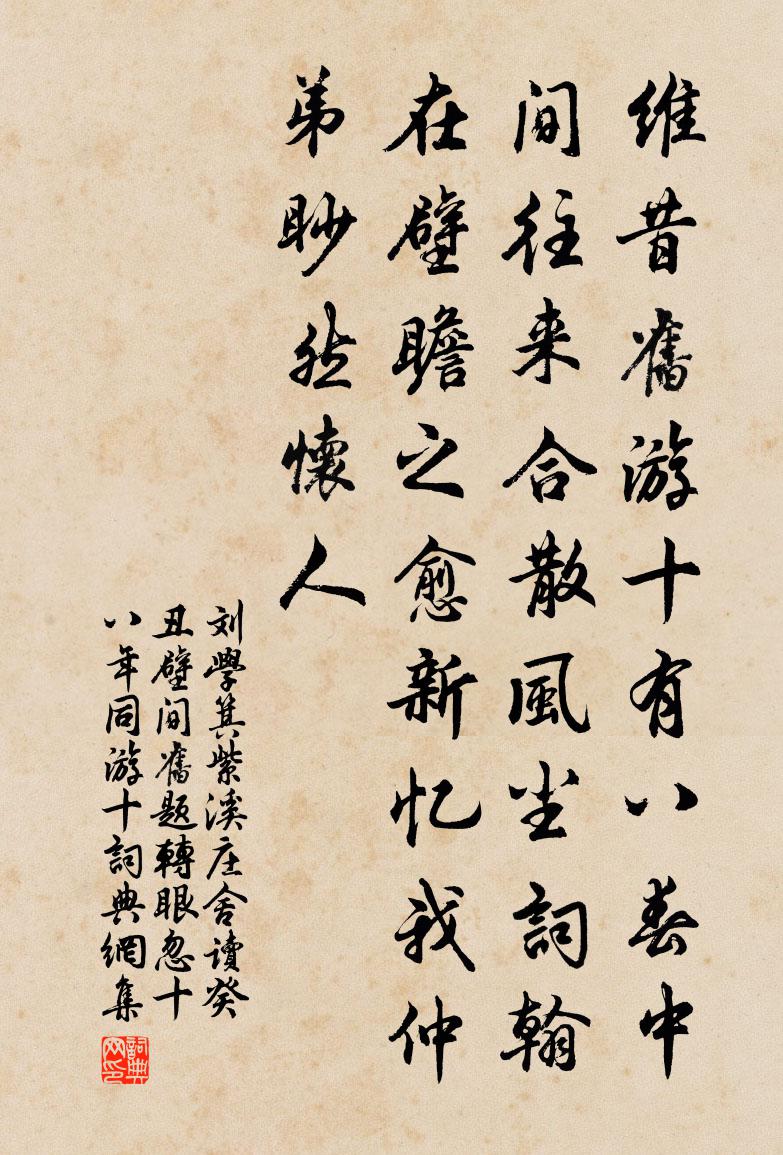 維昔舊游十有八春中
间往来合散風尘詞翰
在壁瞻之愈新忆我仲
弟眇然懷人
刘學箕紫溪庄舍读癸
丑壁间舊题轉眼忽十
八年同游十詞典網集
詞典网印